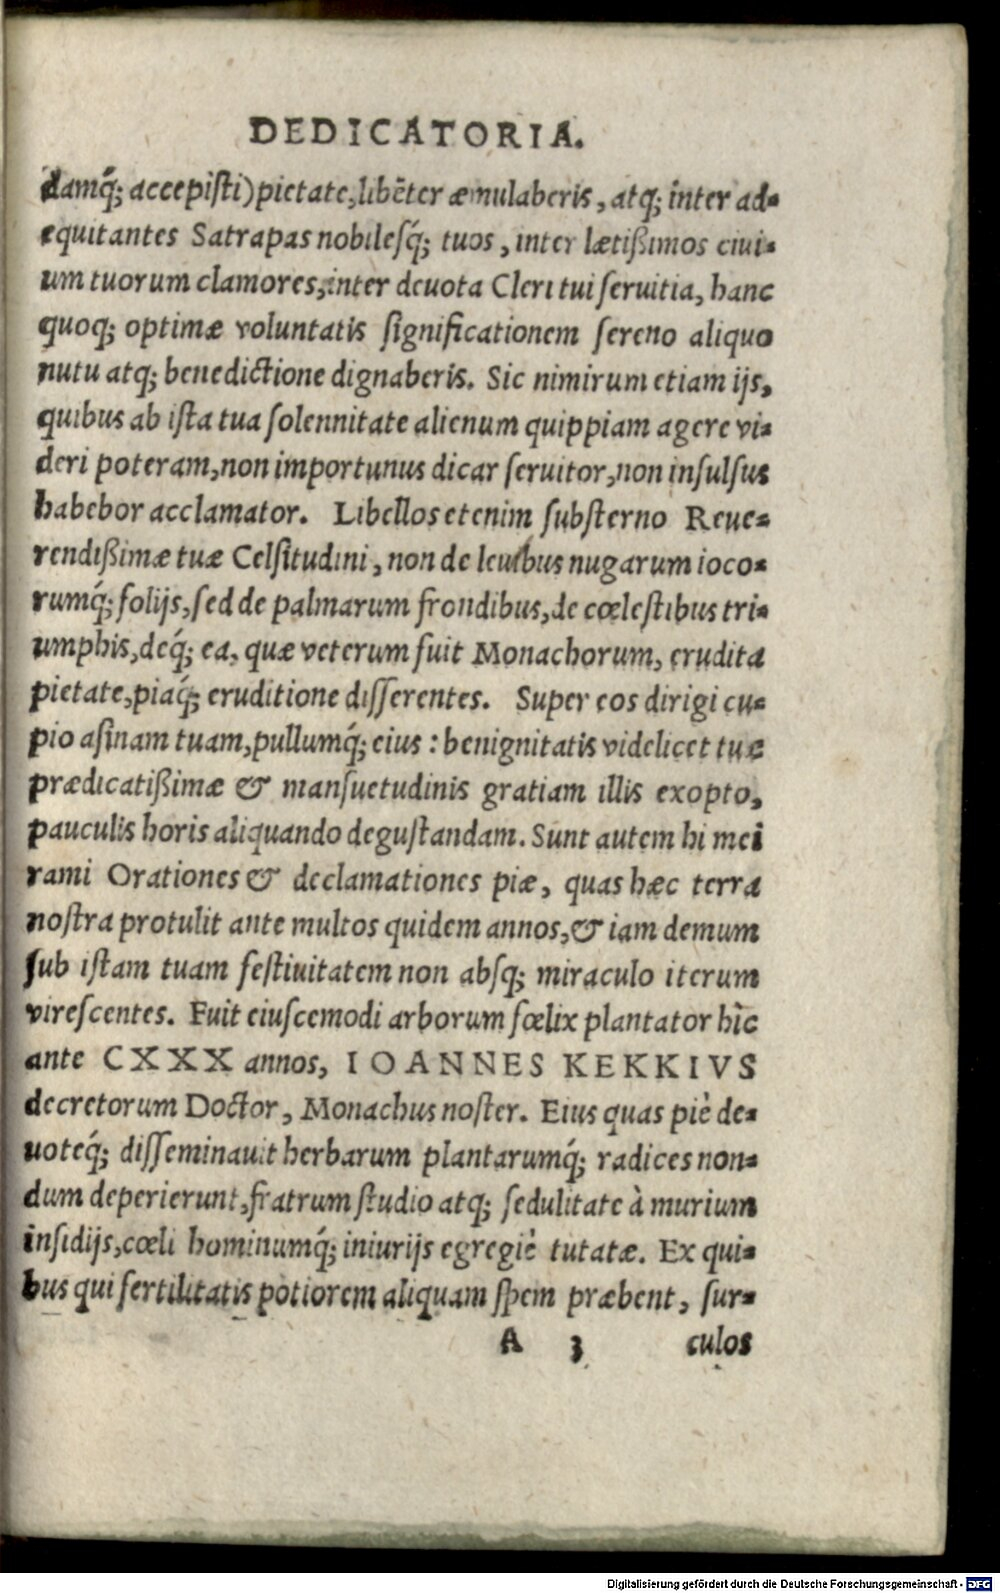 DEDICATORIA.
damq́; accepisti) pietate, libẽter æmulaberis, atq; inter ad-
equitantes Satrapas nobilesq́; tuos, inter lætißimos ciui-
um tuorum clamores, inter deuota Cleri tui seruitia, hanc
quoq; optimæ voluntatis significationem sereno aliquo
nutu atq; benedictione dignaberis. Sic nimirum etiam ijs,
quibus ab ista tua solennitate alienum quippiam agere vi-
deri poteram, non importunus dicar seruitor, non insulsus
habebor acclamator. Libellos etenim substerno Reue-
rendißimæ tuæ Celsitudini, non de leuibus nugarum ioco-
rumq́; folijs, sed de palmarum frondibus, de cœlestibus tri-
umphis, deq́; ea, quæ veterum fuit Monachorum, erudita
pietate, piaq́; eruditione disserentes. Super eos dirigi cu-
pio asinam tuam, pullumq́; eius : benignitatis videlicet tuæ
prædicatißimæ & mansuetudinis gratiam illis exopto,
pauculis horis aliquando degustandam. Sunt autem hi mei
rami Orationes & declamationes piæ, quas hæc terra
nostra protulit ante multos quidem annos, & iam demum
sub istam tuam festiuitatem non absq; miraculo iterum
virescentes. Fuit eiuscemodi arborum fœlix plantator hìc
ante CXXX annos, IOANNES KEKKIVS
decretorum Doctor, Monachus noster. Eius quas piè de-
uoteq́; disseminauit herbarum plantarumq́; radices non-
dum deperierunt, fratrum studio atq; sedulitate à murium
insidijs, cœli hominumq́; iniurijs egregiè tutatæ. Ex qui-
bus qui fertilitatis potiorem aliquam spem præbent, sur-
A 3 culos
Digitalisierung gefördert durch die Deutsche Forschungsgemeinschaft - DFG